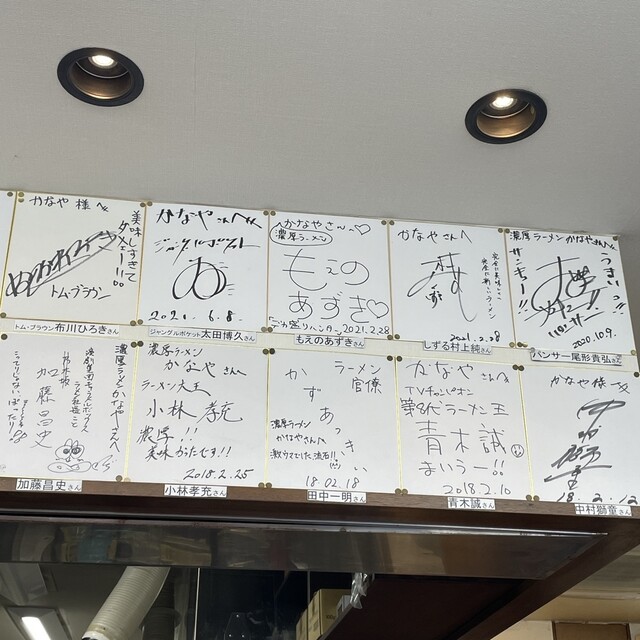 かなや 様へ
美味しすぎて
ダメェー!!。
トム・ブラウン
トム・ブラウン布川ひろきさん
かなや さんへ
ジャングルポケット
2021.6.8.
ジャングルポケット太田博久さん
かなやさんへ
濃厚ラーメン
もえの
あずき♡
2021.2.28
もえのあずきさん
かなや さんへ
2021.2.28
しずる村上純さん
濃厚ラーメン かなやさんへ
うまいっ!!
サンキュー!!
2020.10.9.
パンサー尾形貴弘さん
濃厚ラーメン かなやさんへ
加藤昌史
加藤昌史さん
濃厚ラーメン
かなや さんへ
ラーメン大王
小林 孝充
濃厚!!!
美味がたすぎ!!
2018.2.25
小林孝充さん
ラーメン
官僚
かずあっきぃ
濃厚ラーメン
かなやさんへ
18.02.18
田中一明さん
かなや さんへ
TVチャンピオン
ラーメン王
青木 誠
まいうー!!
2018.2.10
青木誠さん
かなや様へ
18.2.12
中村獅童さん